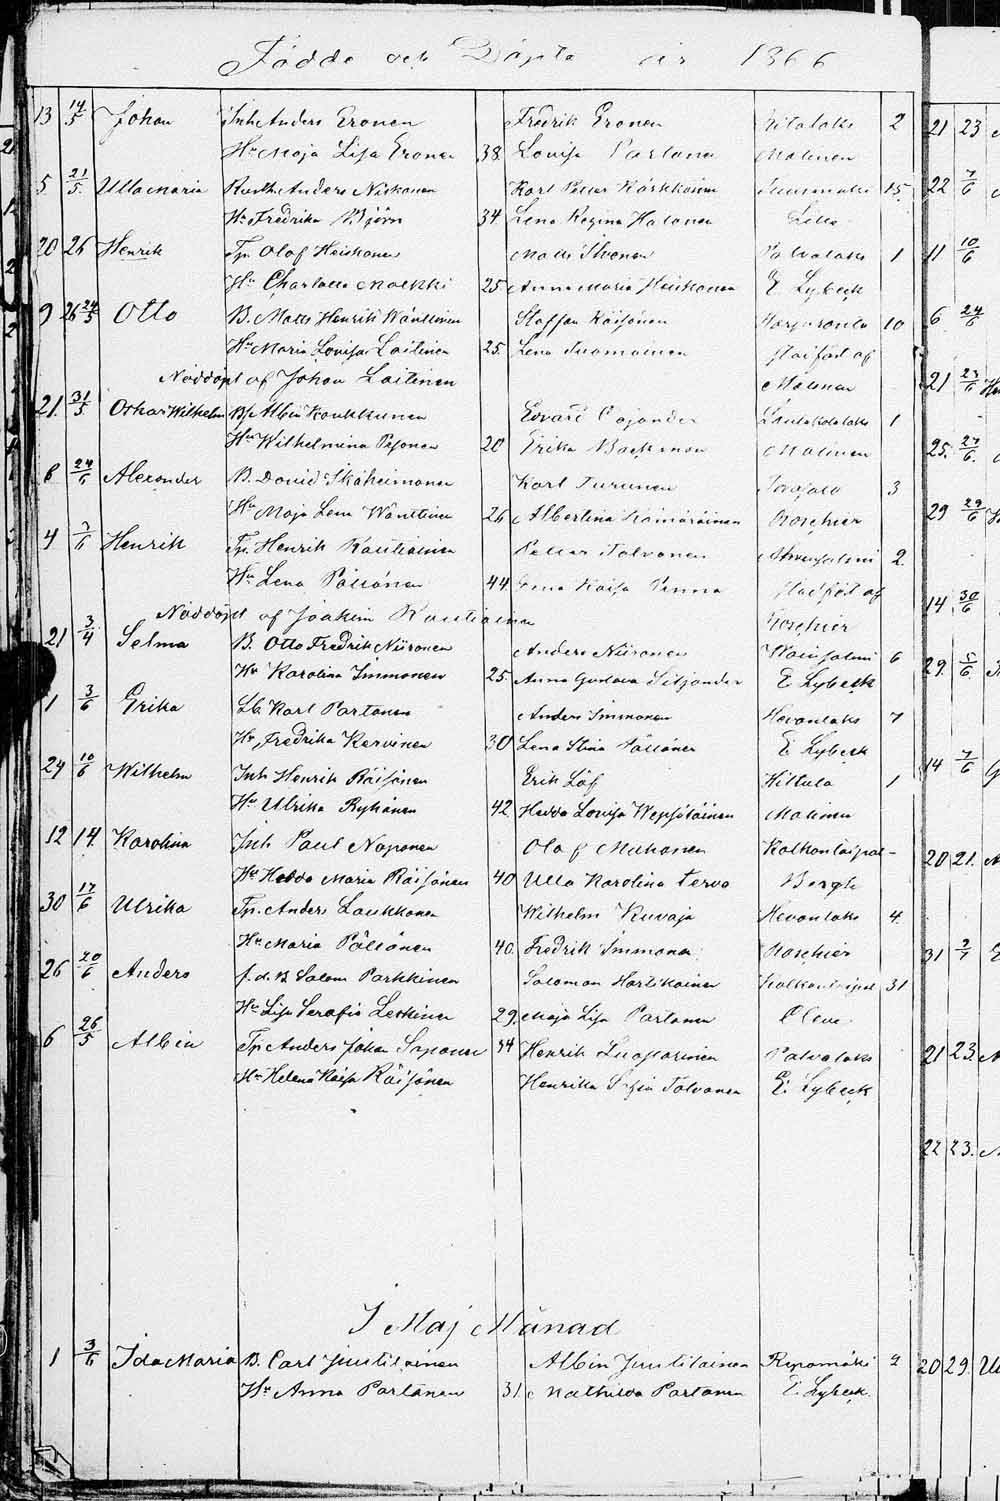 Födde och Döpte år 1866
13 14/5 Johan Inh Anders Eronen Fredrik Eronen 2
Hu Maja Lisa Eronen 38 Lovisa Partanen Malinen
5 21/5 Ulla Maria Anders Niskanen Karl Petter Kärkkäinen 15
Hu Fredrika Björn 34 Lena Regina Halonen
20 26 Henrik Tp. Olof Heiskanen Matts Ihvonen Palvalaks 1
Hu Charlotta Malkki 25 Anna Maria Heiskanen E. Lybeck
9 26 24/5 Otto B. Matts Henrik Wänttinen Staffan Räisänen 10
Hu Maria Lovisa Laitinen 25. Lena Tuomainen stadfäst af
Nöddöpt af Johan Laitinen Malinen
21. 31/5 Oskar Wilhelm B. Albin Koukkunen Edvard Cajander 1
Hu Wilhelmina Piponen 20 Erika Backman Malinen
6 24/6 Alexander B. David Ikäheimonen Karl Turunen 3
Hu Maja Lena Wänttinen 26 Albertina Hämäläinen Roschier
4 7/6 Henrik Tp. Henrik Rautiainen Petter Tolvanen 2.
Hu Lena Pöllönen 44. Kaisa Pinna stadfäst af
Nöddöpt af Joakim Rautiainen Roschier
21 3/4 Selma B. Otto Fredrik Niironen Anders Niironen 6
Hu Karolina Immonen 25. Anna Gustava Siljander E. Lybeck
1 3/6 Erika Lb. Karl Partanen Anders Immonen Hevonlaks 7
Hu Fredrika Kervinen 30 Lena Stina Pöllönen E. Lybeck
24 10/6 Wilhelm Inh Henrik Räisänen Erik Löf Kiltula 1
Hu Ulrika Rykänen 42 Hedda Lovisa Wepsäläinen Malinen
12 14. Karolina Inh Paul Noponen Olof Makonen Kolkonlaipal -
Hu Hedda Maria Räisänen 40 Ulla Karolina Tervo Bergh
30 17/6 Ulrika Tp. Anders Laukkanen Wilhelm Kuvaja Hevonlaks 4.
Hu Maria Pöllönen 40. Fredrik Immonen Roschier
26 20/6 Anders f. d. B Salom Parkkinen Salomon Hartikainen 31
Hu Lisa Serafia Leskinen 29. Maja Lisa Partanen Cleve
6 26/5 Albin Tp. Anders Johan Saponen 44 Henrik Luostarinen Palvalaks
Hu Helena Kaisa Räisänen Henrika Sofia Tolvanen E. Lybeck
I Maj Månad
1 3/6 Ida Maria B. Carl Juutilainen Albin Juutilainen Repomäki 2
Hu Anna Partanen 31. Mathilda Partanen E. Lybeck